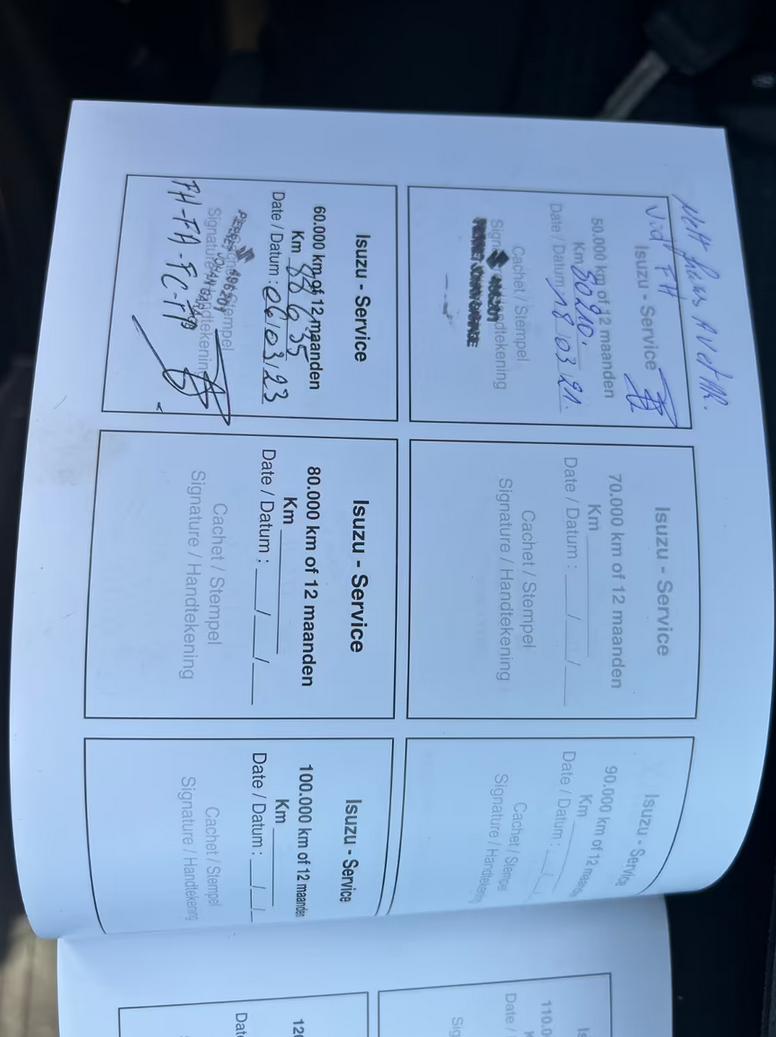 Isuzu - Service
50.000 km of 12 maanden
Km 80210.
Date / Datum : 18 03 21.
Cachet / Stempel
Isuzu - Service
70.000 km of 12 maanden
Km
Date / Datum : __/__/__
Cachet / Stempel
Signature / Handtekening
Isuzu - Service
90.000 km of 12 maanden
Km
Date / Datum : __/__/__
Cachet / Stempel
Signature / Handtekening
Isuzu - Service
60.000 km of 12 maanden
Km 88635
Date / Datum : 06/03/23
Stempel
Signature / Handtekening
FH-FA-FC-FP
Isuzu - Service
80.000 km of 12 maanden
Km
Date / Datum : __/__/__
Cachet / Stempel
Signature / Handtekening
Isuzu - Service
100.000 km of 12 maanden
Km
Date / Datum : __/__/__
Cachet / Stempel
Signature / Handtekening
110.0
Date /
Sig
120
Dat